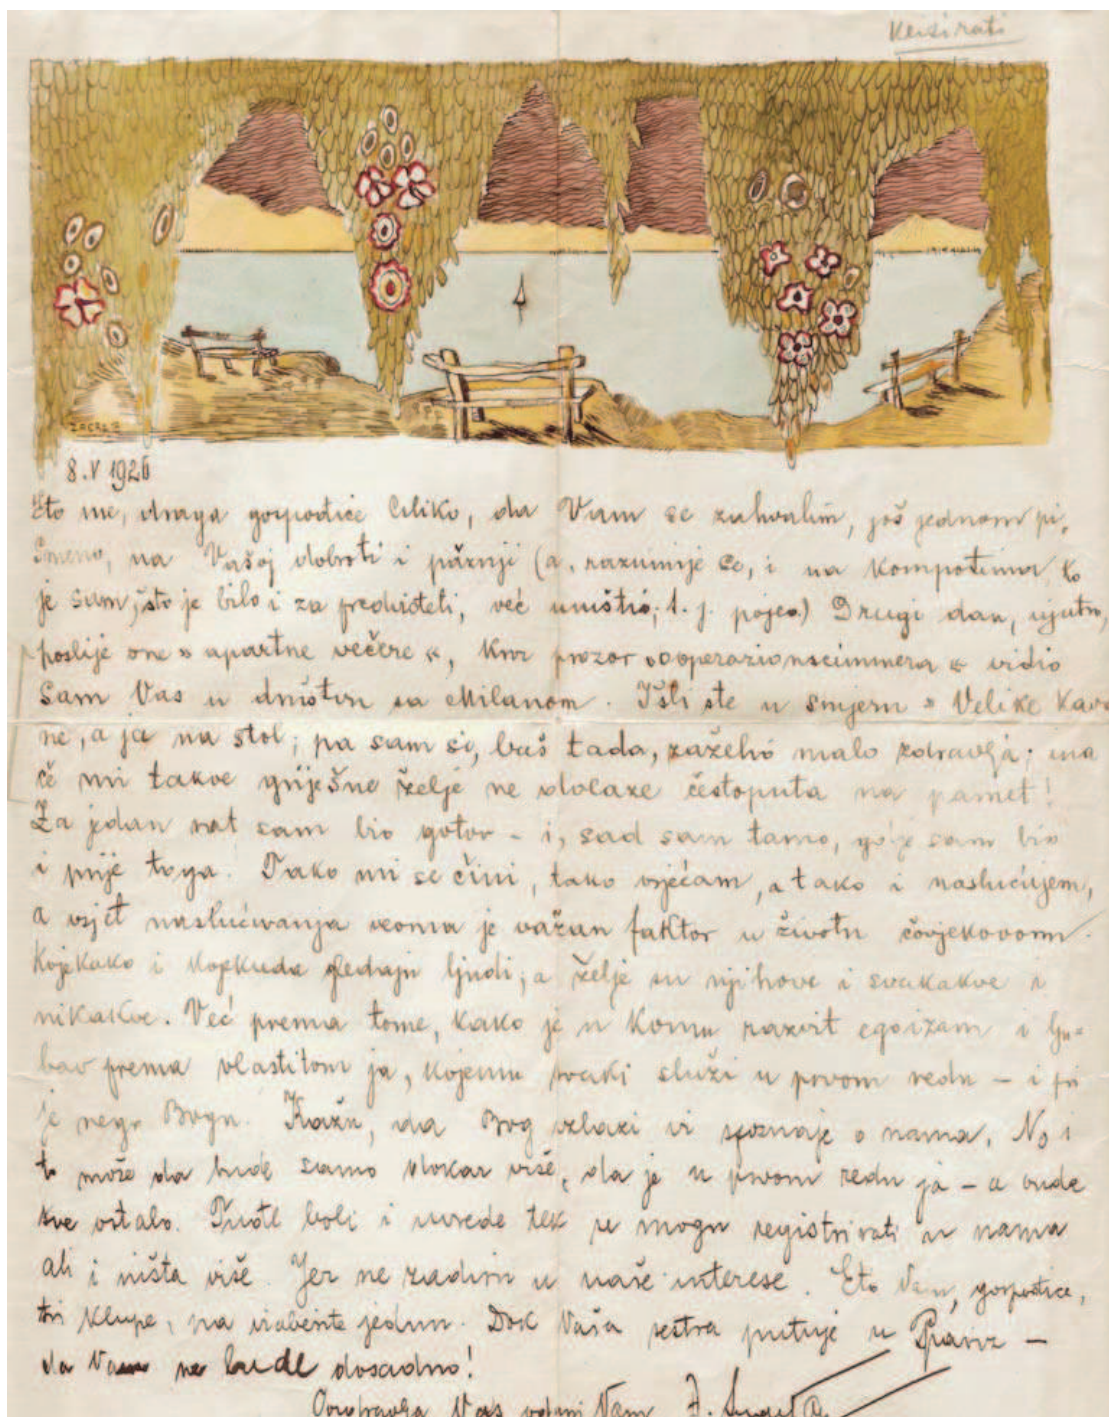 ZAGREB
8. V 1926
Eto me, draga gospođice Ciliko, da Vam se zahvalim, još jednom pi,
smeno, na Vašoj dobroti i pažnji (a, razumije se, i na kompotima, ko
je sam, što je bilo i za predvidjeti, već uništio; t. j. pojeo.) Drugi dan, ujutro,
poslije one » apartne večere «, kroz prozor » operazionscimmera « vidio
sam Vas u društvu sa Milanom. Išli ste u smjeru » Velike Kava
ne, a ja na stol; pa sam si, baš tada, zaželio malo zdravlja; ina
če mi takve griješne želje ne dolaze čestoputa na pamet!
Za jedan rat sam bio gotov – i, sad sam tamo, gdje sam bio
i prije toga. Tako mi se čini, tako osjećam, a tako i naslućujem,
a osjet naslućivanja veoma je važan faktor u životu čovjekovom.
Kojekako i kojekuda gledaju ljudi; a želje su njihove i svakakve i
nikakve. Već prema tome, kako je u komu razvit egoizam i lju=
bav prema vlastitom ja, kojemu svaki služi u prvom redu – i pri
je nego Bogu. Kažu, da Bog odlazi iz nama. No i
to može da bude samo dokaz više, da je u prvom redu ja – a onda
sve ostalo. boli i uvrede tek se mogu registrirati u nama
ali i ništa više. Jer ne zadiru u naše interese. Eto Vam, gospođice,
tri klupe, pa izaberite jednu. Dok Vaša sestra putuje u Pariz –
da Vam ne bude dosadno!
Vas odani Vam